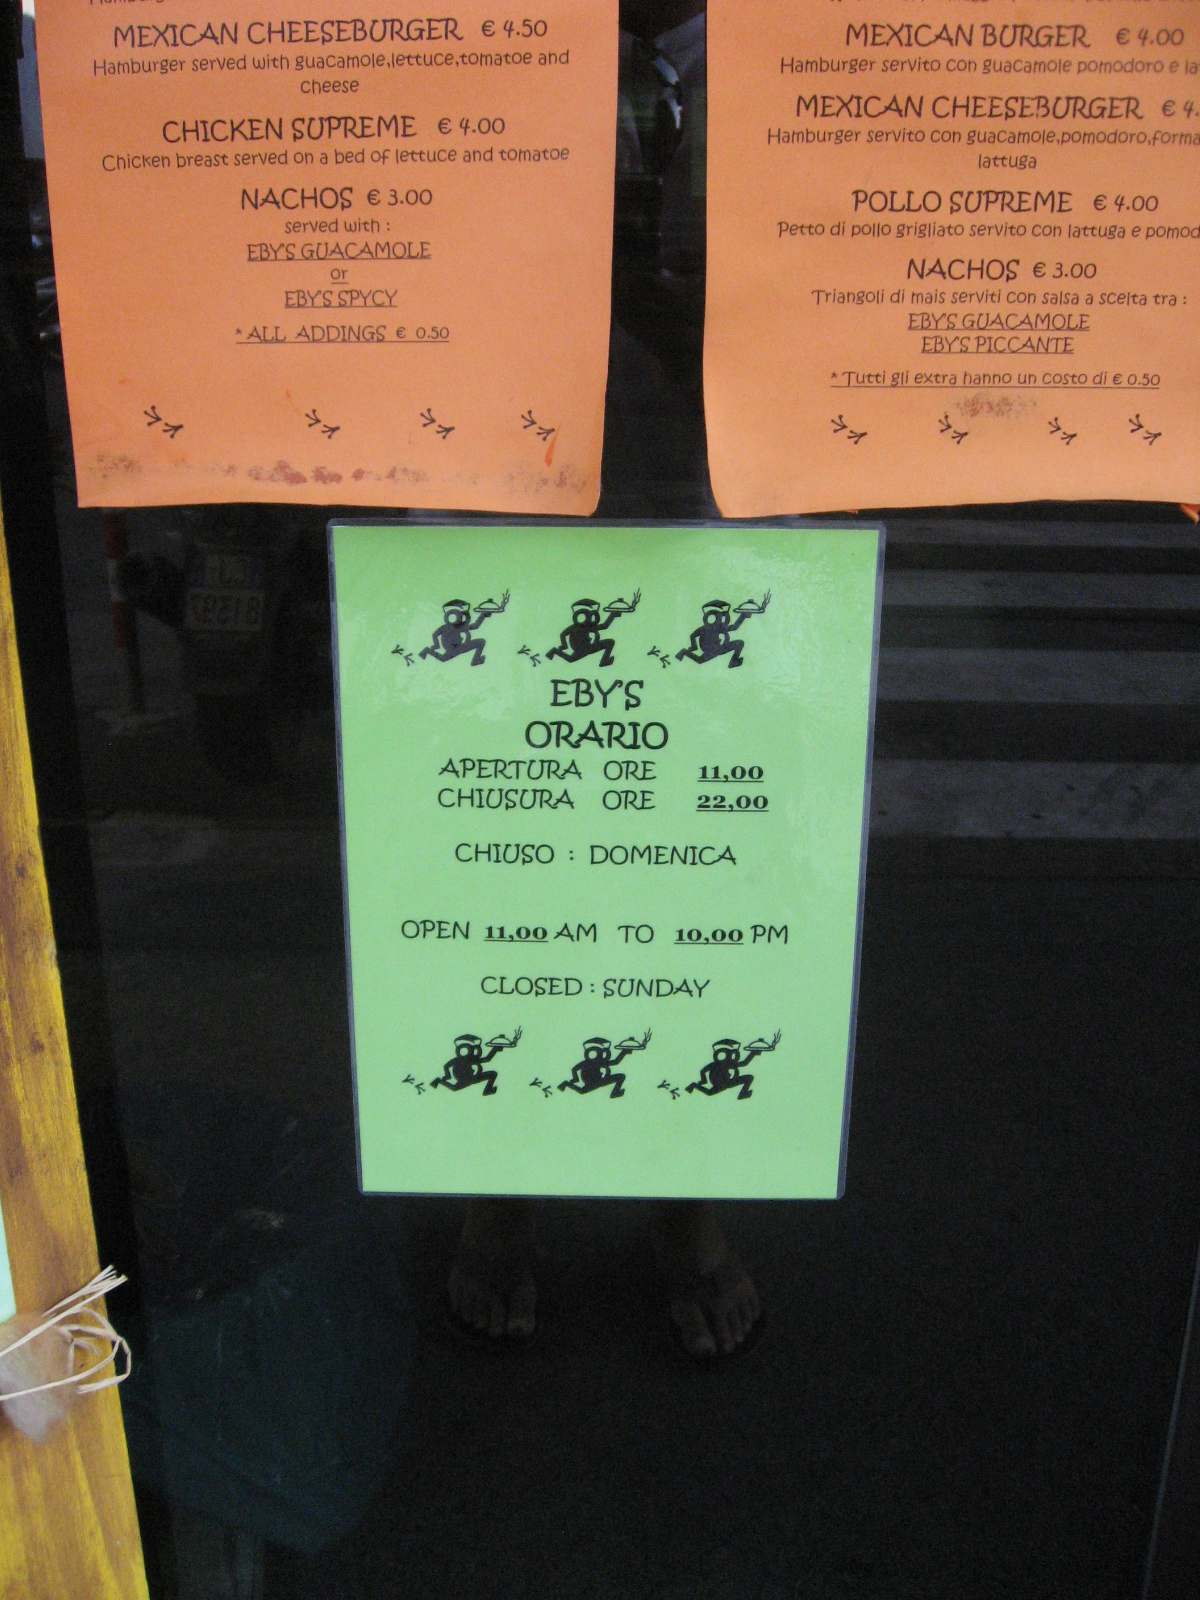 MEXICAN CHEESEBURGER € 4.50
Hamburger served with guacamole,lettuce,tomatoe and
cheese
CHICKEN SUPREME € 4.00
Chicken breast served on a bed of lettuce and tomatoe
NACHOS € 3.00
served with :
EBY'S GUACAMOLE
or
EBY'S SPYCY
* ALL ADDINGS € 0.50
MEXICAN BURGER € 4.00
Hamburger servito con guacamole pomodoro e
MEXICAN CHEESEBURGER €
Hamburger servito con guacamole,pomodoro,
lattuga
POLLO SUPREME € 4.00
Petto di pollo grigliato servito con lattuga e
NACHOS € 3.00
Triangoli di mais serviti con salsa a scelta tra :
EBY'S GUACAMOLE
EBY'S PICCANTE
* Tutti gli extra hanno un costo di € 0.50
EBY'S
ORARIO
APERTURA ORE 11,00
CHIUSURA ORE 22,00
CHIUSO : DOMENICA
OPEN 11,00 AM TO 10,00 PM
CLOSED : SUNDAY